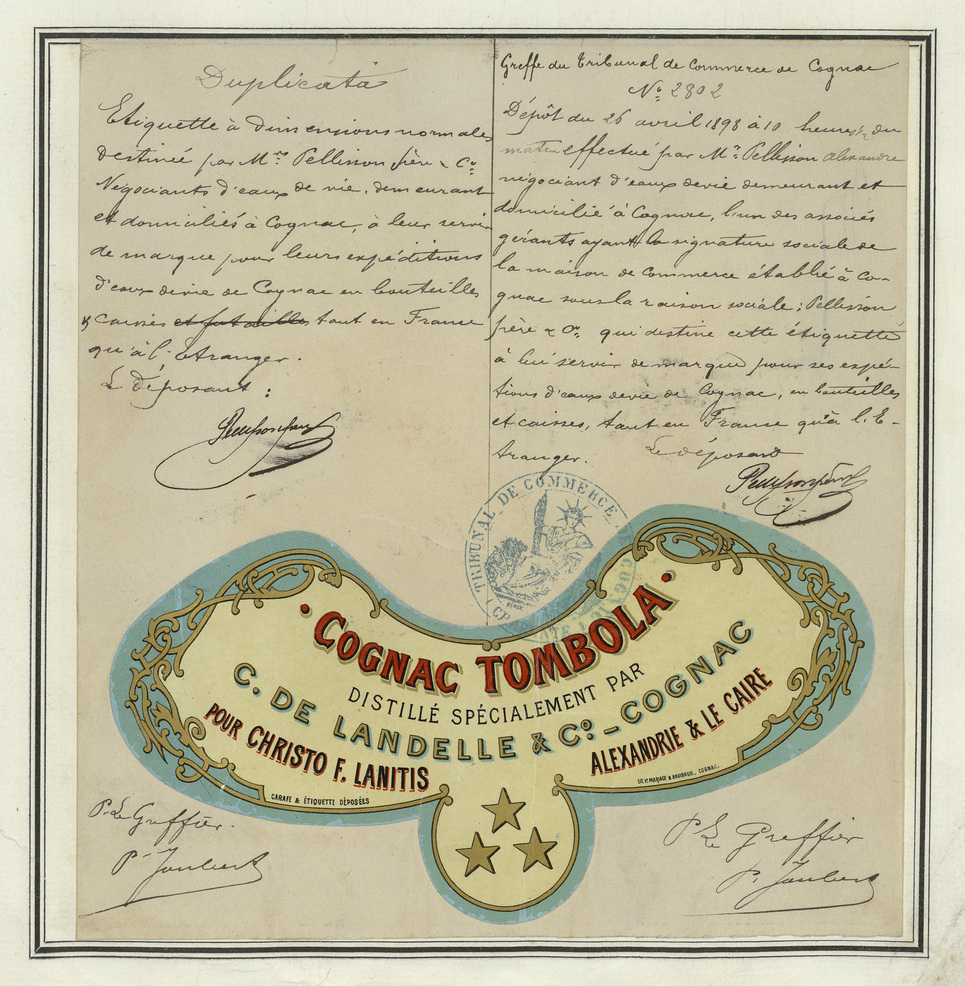 Duplicata
Etiquette à dimensions normales
destinée par M.rs Pellisson père & C.ie
Négociants d'eaux de vie, demeurant
et domiciliés à Cognac, à leur servir
de marque pour leurs expéditions
d'eaux de vie de Cognac en bouteilles
& caisses et futailles tant en France
qu'à l'Etranger.
Le déposant :
Greffe du Tribunal de Commerce de Cognac
No. 2802
Dépôt du 26 avril 1898 à 10 heures 1/2 du
matin effectué par M.r Pellisson Alexandre
négociant d'eaux de vie demeurant et
domicilié à Cognac, l'un des associés
gérants ayant la signature sociale de
la maison de Commerce établie à Co-
gnac sous la raison sociale : Pellisson
père & Cie. qui destine cette étiquette
à lui servir de marque pour ses expé-
tions d'eaux de vie de Cognac, en bouteilles
et caisses, tant en France qu'à l'E-
tranger.
Le déposant
TRIBUNAL DE COMMERCE
COGNAC TOMBOLA
DISTILLÉ SPÉCIALEMENT PAR
C. DE LANDELLE & Co. – COGNAC
POUR CHRISTO F. LANITIS
ALEXANDRIE & LE CAIRE
CARAFE & ÉTIQUETTE DÉPOSÉES
P. Le Greffier.
P. Joubert
P. Le Greffier
P. Joubert